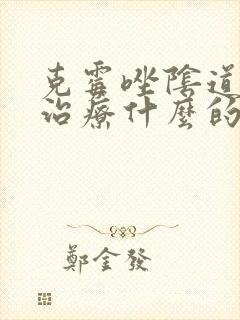 克霉唑陰道
治療什麼的
鄭金發